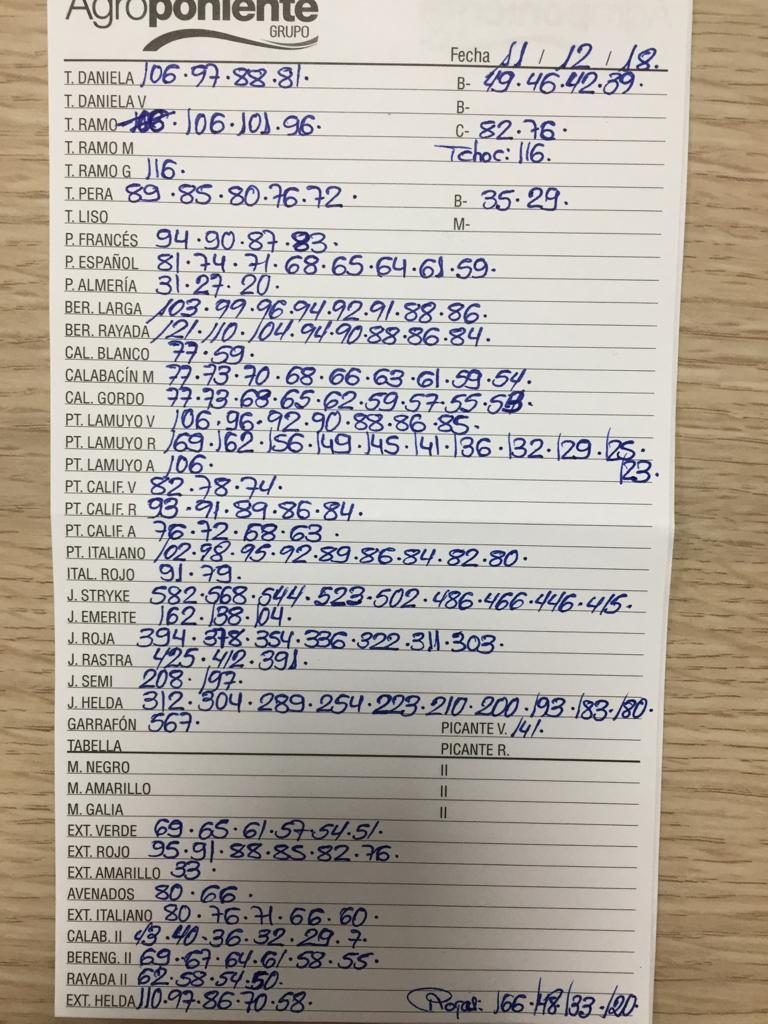 Agroponiente
GRUPO
Fecha 11 / 12 / 18.
T. DANIELA 106.97.88.81. B- 49.46.42.39.
T. DANIELA V B-
T. RAMO 106.101.96. C- 82.76.
T. RAMO M Tchoc: 116.
T. RAMO G 116.
T. PERA 89.85.80.76.72. B- 35.29.
T. LISO M-
P. FRANCÉS 94.90.87.83.
P. ESPAÑOL 81.74.71.68.65.64.61.59.
P. ALMERÍA 31.27.20.
BER. LARGA 103.99.96.94.92.91.88.86.
BER. RAYADA 121.110.104.94.90.88.86.84.
CAL. BLANCO 77.59.
CALABACÍN M 77.73.70.68.66.63.61.59.54.
CAL. GORDO 77.73.68.65.62.59.57.55.53.
PT. LAMUYO V 106.96.92.90.88.86.85.
PT. LAMUYO R 169.162.156.149.145.141.136.132.129.125.
123.
PT. LAMUYO A 106.
PT. CALIF. V 82.78.74.
PT. CALIF. R 93.91.89.86.84.
PT. CALIF. A 76.72.68.63.
PT. ITALIANO 102.98.95.92.89.86.84.82.80.
ITAL. ROJO 91.79.
J. STRYKE 582.568.544.523.502.486.466.446.415.
J. EMERITE 162.138.104.
J. ROJA 394.378.354.336.322.311.303.
J. RASTRA 425.412.391.
J. SEMI 208.197.
J. HELDA 312.304.289.254.223.210.200.193.183.180.
GARRAFÓN 567. PICANTE V. 141.
TABELLA PICANTE R.
M. NEGRO II
M. AMARILLO II
M. GALIA II
EXT. VERDE 69.65.61.57.54.51.
EXT. ROJO 95.91.88.85.82.76.
EXT. AMARILLO 33.
AVENADOS 80.66.
EXT. ITALIANO 80.76.71.66.60.
CALAB. II 43.40.36.32.29.7.
BERENG. II 69.67.64.61.58.55.
RAYADA II 62.58.54.50.
EXT. HELDA 110.97.86.70.58. Rojas: 166.148.133.120.